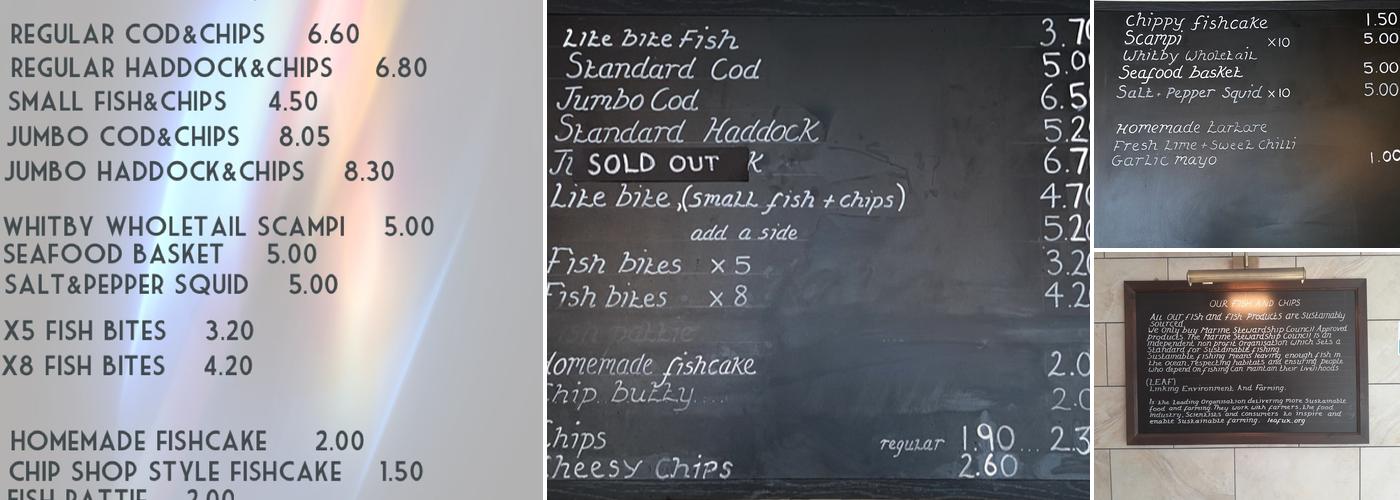 REGULAR COD&CHIPS 6.60
REGULAR HADDOCK&CHIPS 6.80
SMALL FISH&CHIPS 4.50
JUMBO COD&CHIPS 8.05
JUMBO HADDOCK&CHIPS 8.30
WHITBY WHOLETAIL SCAMPI 5.00
SEAFOOD BASKET 5.00
SALT&PEPPER SQUID 5.00
X5 FISH BITES 3.20
X8 FISH BITES 4.20
HOMEMADE FISHCAKE 2.00
CHIP SHOP STYLE FISHCAKE 1.50
FISH PATTIE 2.00
Lite bite Fish 3.70
Standard Cod 5.0
Jumbo Cod 6.5
Standard Haddock 5.2
SOLD OUT K 6.7
Lite bite, (small fish + chips) 4.70
add a side 5.20
Fish bites x 5 3.2
Fish bites x 8 4.2
Homemade fishcake 2.0
Chip butty 2.0
Chips regular 1.90 2.3
Cheesy Chips 2.60
Chippy fishcake 1.50
Scampi x10 5.00
Whitby Wholetail
Seafood basket 5.00
Salt + Pepper Squid x10 5.00
Homemade tartare
Fresh Lime + Sweet Chilli
Garlic mayo 1.00
OUR FISH AND CHIPS
All our fish and fish Products are Sustainably
Sourced
We only buy Marine Stewardship Council Approved
products The Marine Stewardship Council is an
independent non profit Organisation which Sets a
Standard for Sustainable fishing
Sustainable fishing means leaving enough fish in
the ocean, respecting habitats and ensuring people
who depend on fishing Can maintain their livelihoods
(LEAF)
Linking Environment And Farming.
Is the Leading Organisation delivering more Sustainable
food and farming. They work with farmers, the food
industry, Scientists and consumers to inspire and
enable Sustainable farming. leafuk.org